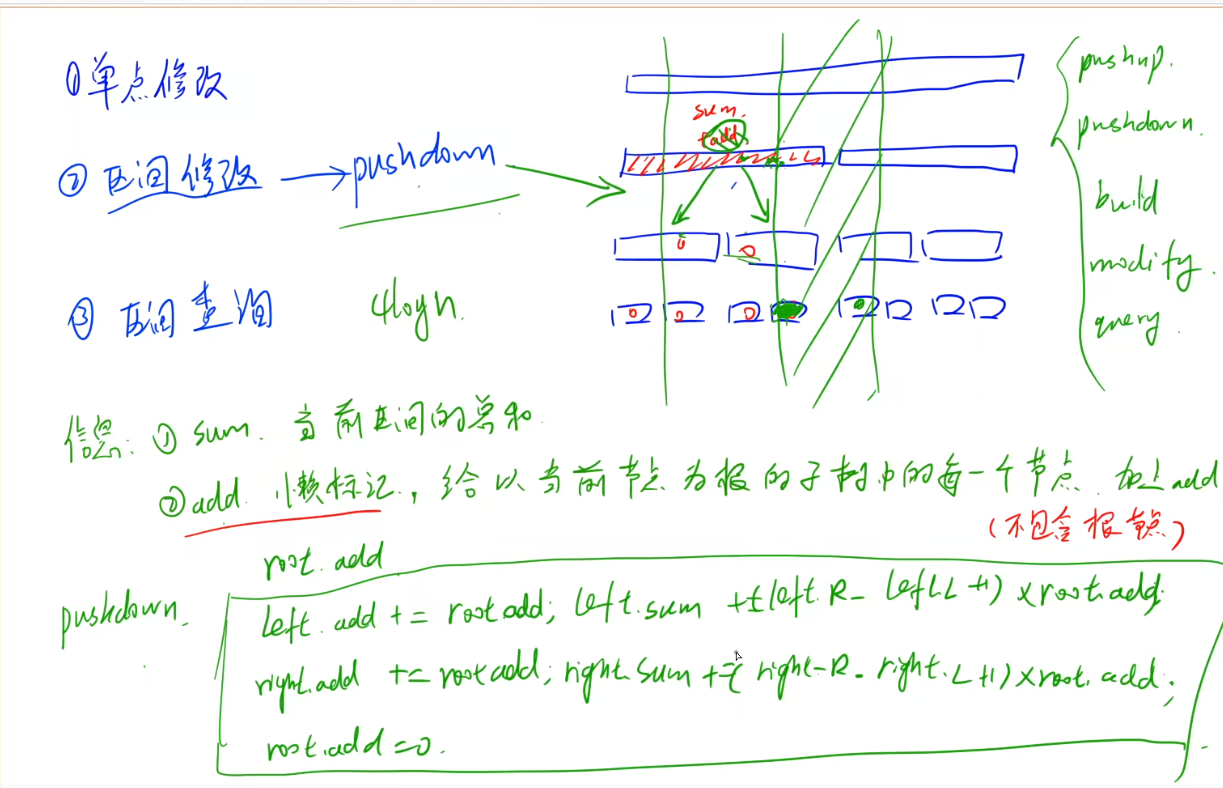 ①单点修改
②区间修改 → pushdown
③区间查询 4logn.
sum.
+add
pushup.
pushdown.
build
modify.
query.
信息: ① sum. 当前区间的总和.
②add. 懒标记, 给以当前节点为根的子树中的每一个节点 加上add
(不包含根节点)
root.add
pushdown.
left.add += root.add; left.sum += (left.R - left.L +1) × root.add;
right.add += root.add; right.sum += (right.R - right.L +1) × root.add;
root.add = 0.